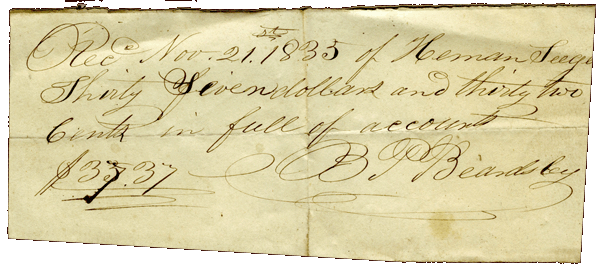 Recd. Nov. 21st. 1835 of Heman
Thirty Seven dollars and thirty two
Cents in full of account
B P Beardsley